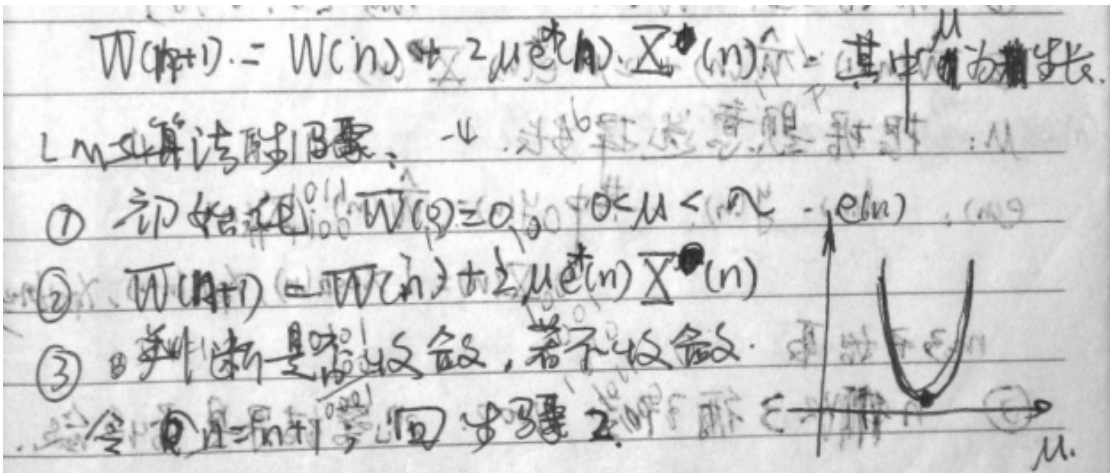 W̅(n+1) = W(n) + 2μe*(n) X̅(n) 其中μ为步长.
LMS算法的步骤:
① 初始化 W̅(0)=0, 0<μ<
② W̅(n+1) = W̅(n) + 2μe*(n) X̅(n)
③ 判断是否收敛,若不收敛.
令 n=n+1 回步骤2.
e(n)
μ.